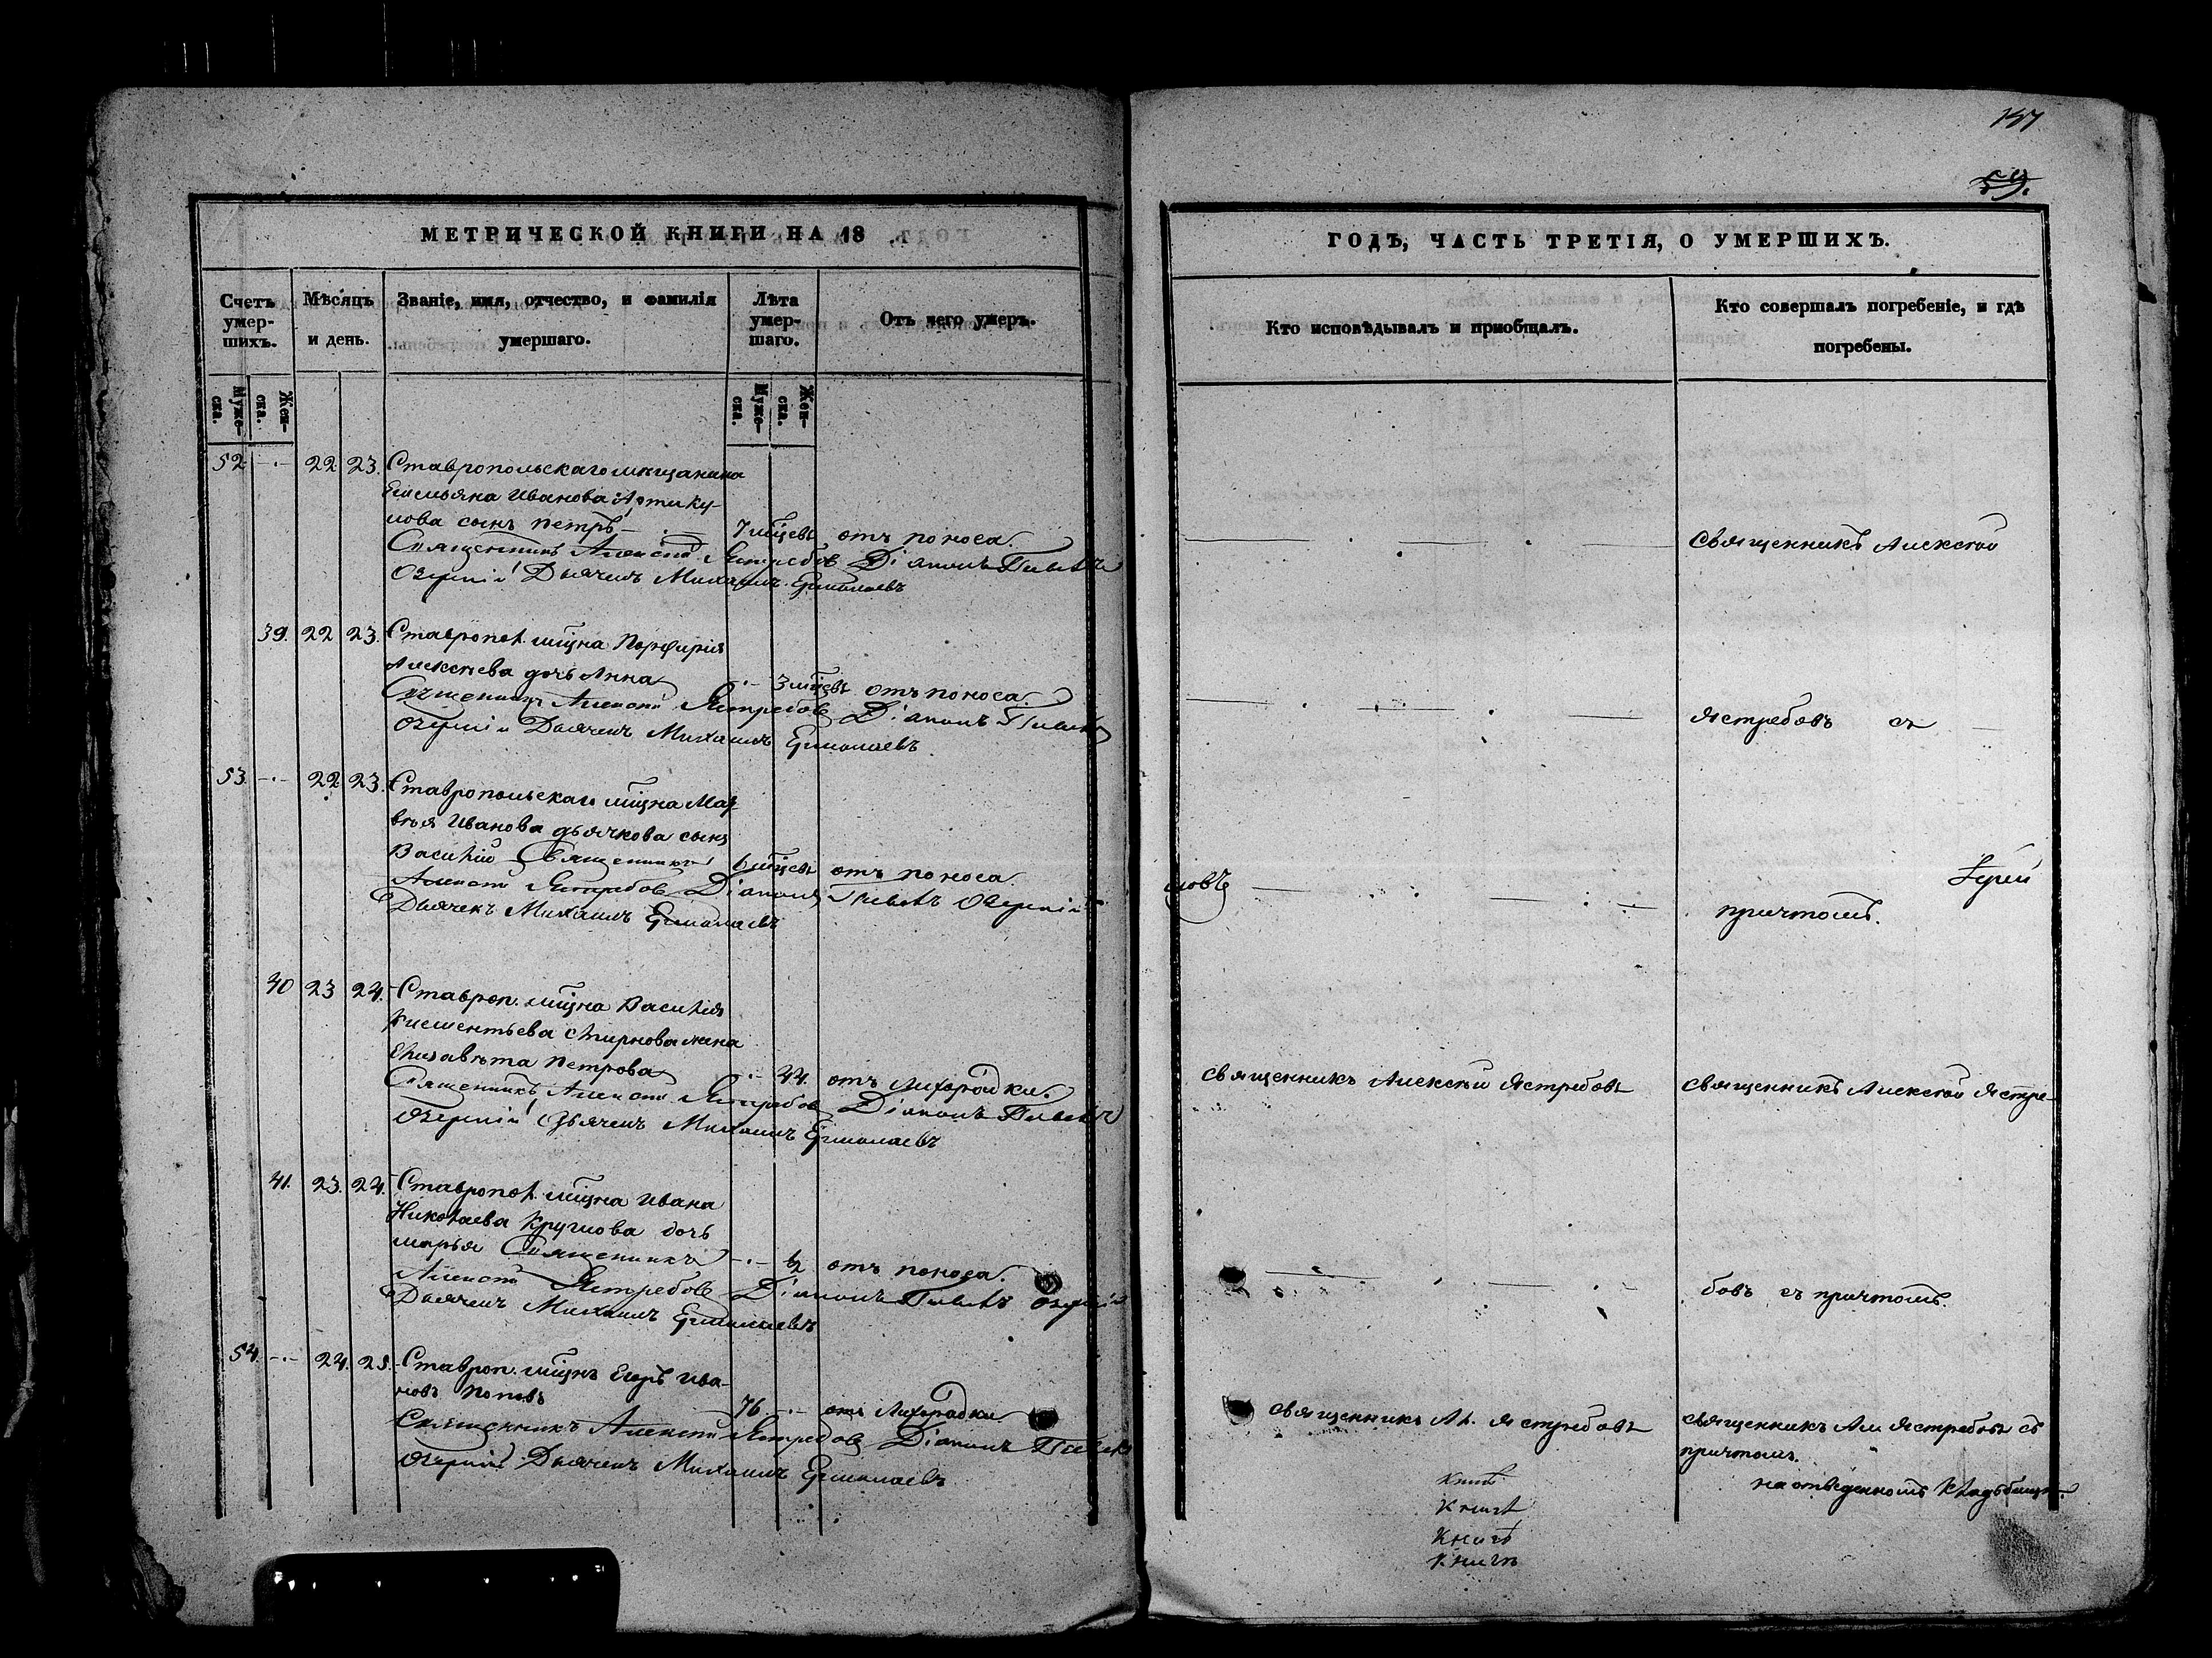 137
59.
МЕТРИЧЕСКОЙ КНИГИ НА 18
Счетъ умер-шихъ.
Мѣсяцъ и день.
Званіе, имя, отчество, и фамилія умершаго.
Лѣта умер-шаго.
Отъ чего умеръ.
Муже-ска.
Жен-ска.
Муже-ска.
Жен-ска.
52 -·- 22 23. Ставропольскаго мѣщанина
Емельяна Иванова Артику-
лова сынъ Петръ - 7 мѣцевъ отъ поноса.
Священникъ Алексѣй Ястребовъ Діаконъ
Озерній Дьячекъ Михаилъ Ермолаевъ
39. 22 23. Ставропол. мѣщна Порфирія
Алексѣева дочь Анна -·- 3 мѣцевъ отъ поноса.
Священникъ Алексѣй Ястребовъ Діаконъ
Озерній Дьячекъ Михаилъ Ермолаевъ
53. -·- 22 23. Ставропольскаго мѣщна Мат-
вѣя Иванова дьячкова сынъ
Василій Священникъ 6 мѣцевъ отъ поноса.
Алексѣй Ястребовъ Діаконъ Озерній
Дьячекъ Михаилъ Ермолаевъ
40 23 24. Ставроп. мѣщна Василія
Клементьева Смирнова жена
Елизавѣта Петрова -·- 44. отъ лихорадки.
Священникъ Алексѣй Ястребовъ Діаконъ
Озерній Дьячекъ Михаилъ Ермолаевъ
41. 23. 24. Ставропол. мѣщна Ивана
Николаева Круглова дочь
Марья Священникъ -·- ½ отъ поноса.
Алексѣй Ястребовъ Діаконъ Озерній
Дьячекъ Михаилъ Ермолаевъ
54. -·- 24. 25. Ставроп. мѣщнъ Егоръ Ива-
новъ Поповъ 76 -·- отъ лихорадки
Священникъ Алексѣй Ястребовъ Діаконъ
Озерній Дьячекъ Михаилъ Ермолаевъ
ГОДЪ, ЧАСТЬ ТРЕТІЯ, О УМЕРШИХЪ.
Кто исповѣдывалъ и пріобщалъ.
Кто совершалъ погребеніе, и гдѣ погребены.
Священникъ Алексѣй
Ястребовъ съ
причтомъ.
Священникъ Алексѣй Ястребовъ
Священникъ Алексѣй Ястре-
бовъ съ причтомъ.
Священникъ Ал. Ястребовъ
Священникъ Ал Ястребовъ съ
причтомъ.
на отведенномъ кладбищѣ.
Книг
Книгъ